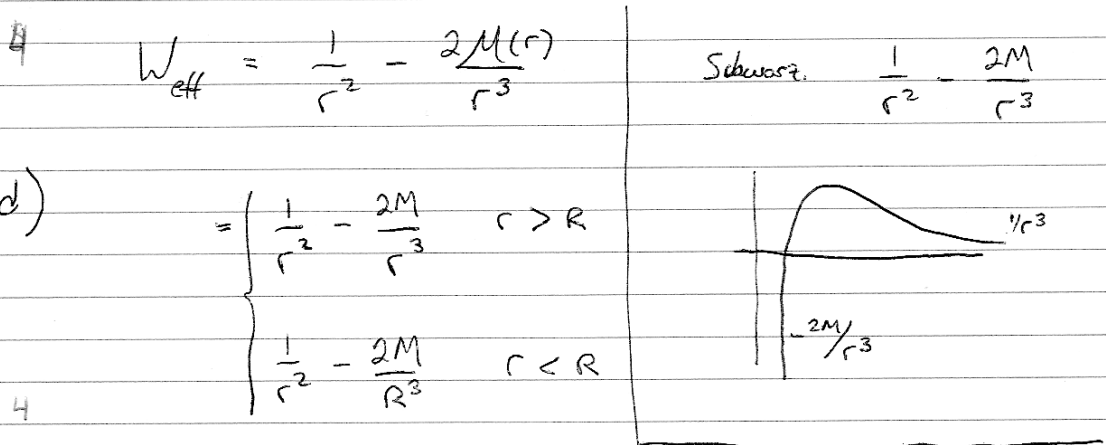 4
W_eff = 1/r² - 2M(r)/r³
Schwarz. 1/r² - 2M/r³
d)
= { 1/r² - 2M/r³ r > R
1/r² - 2M/R³ r < R
1/r³
-2M/r³
4